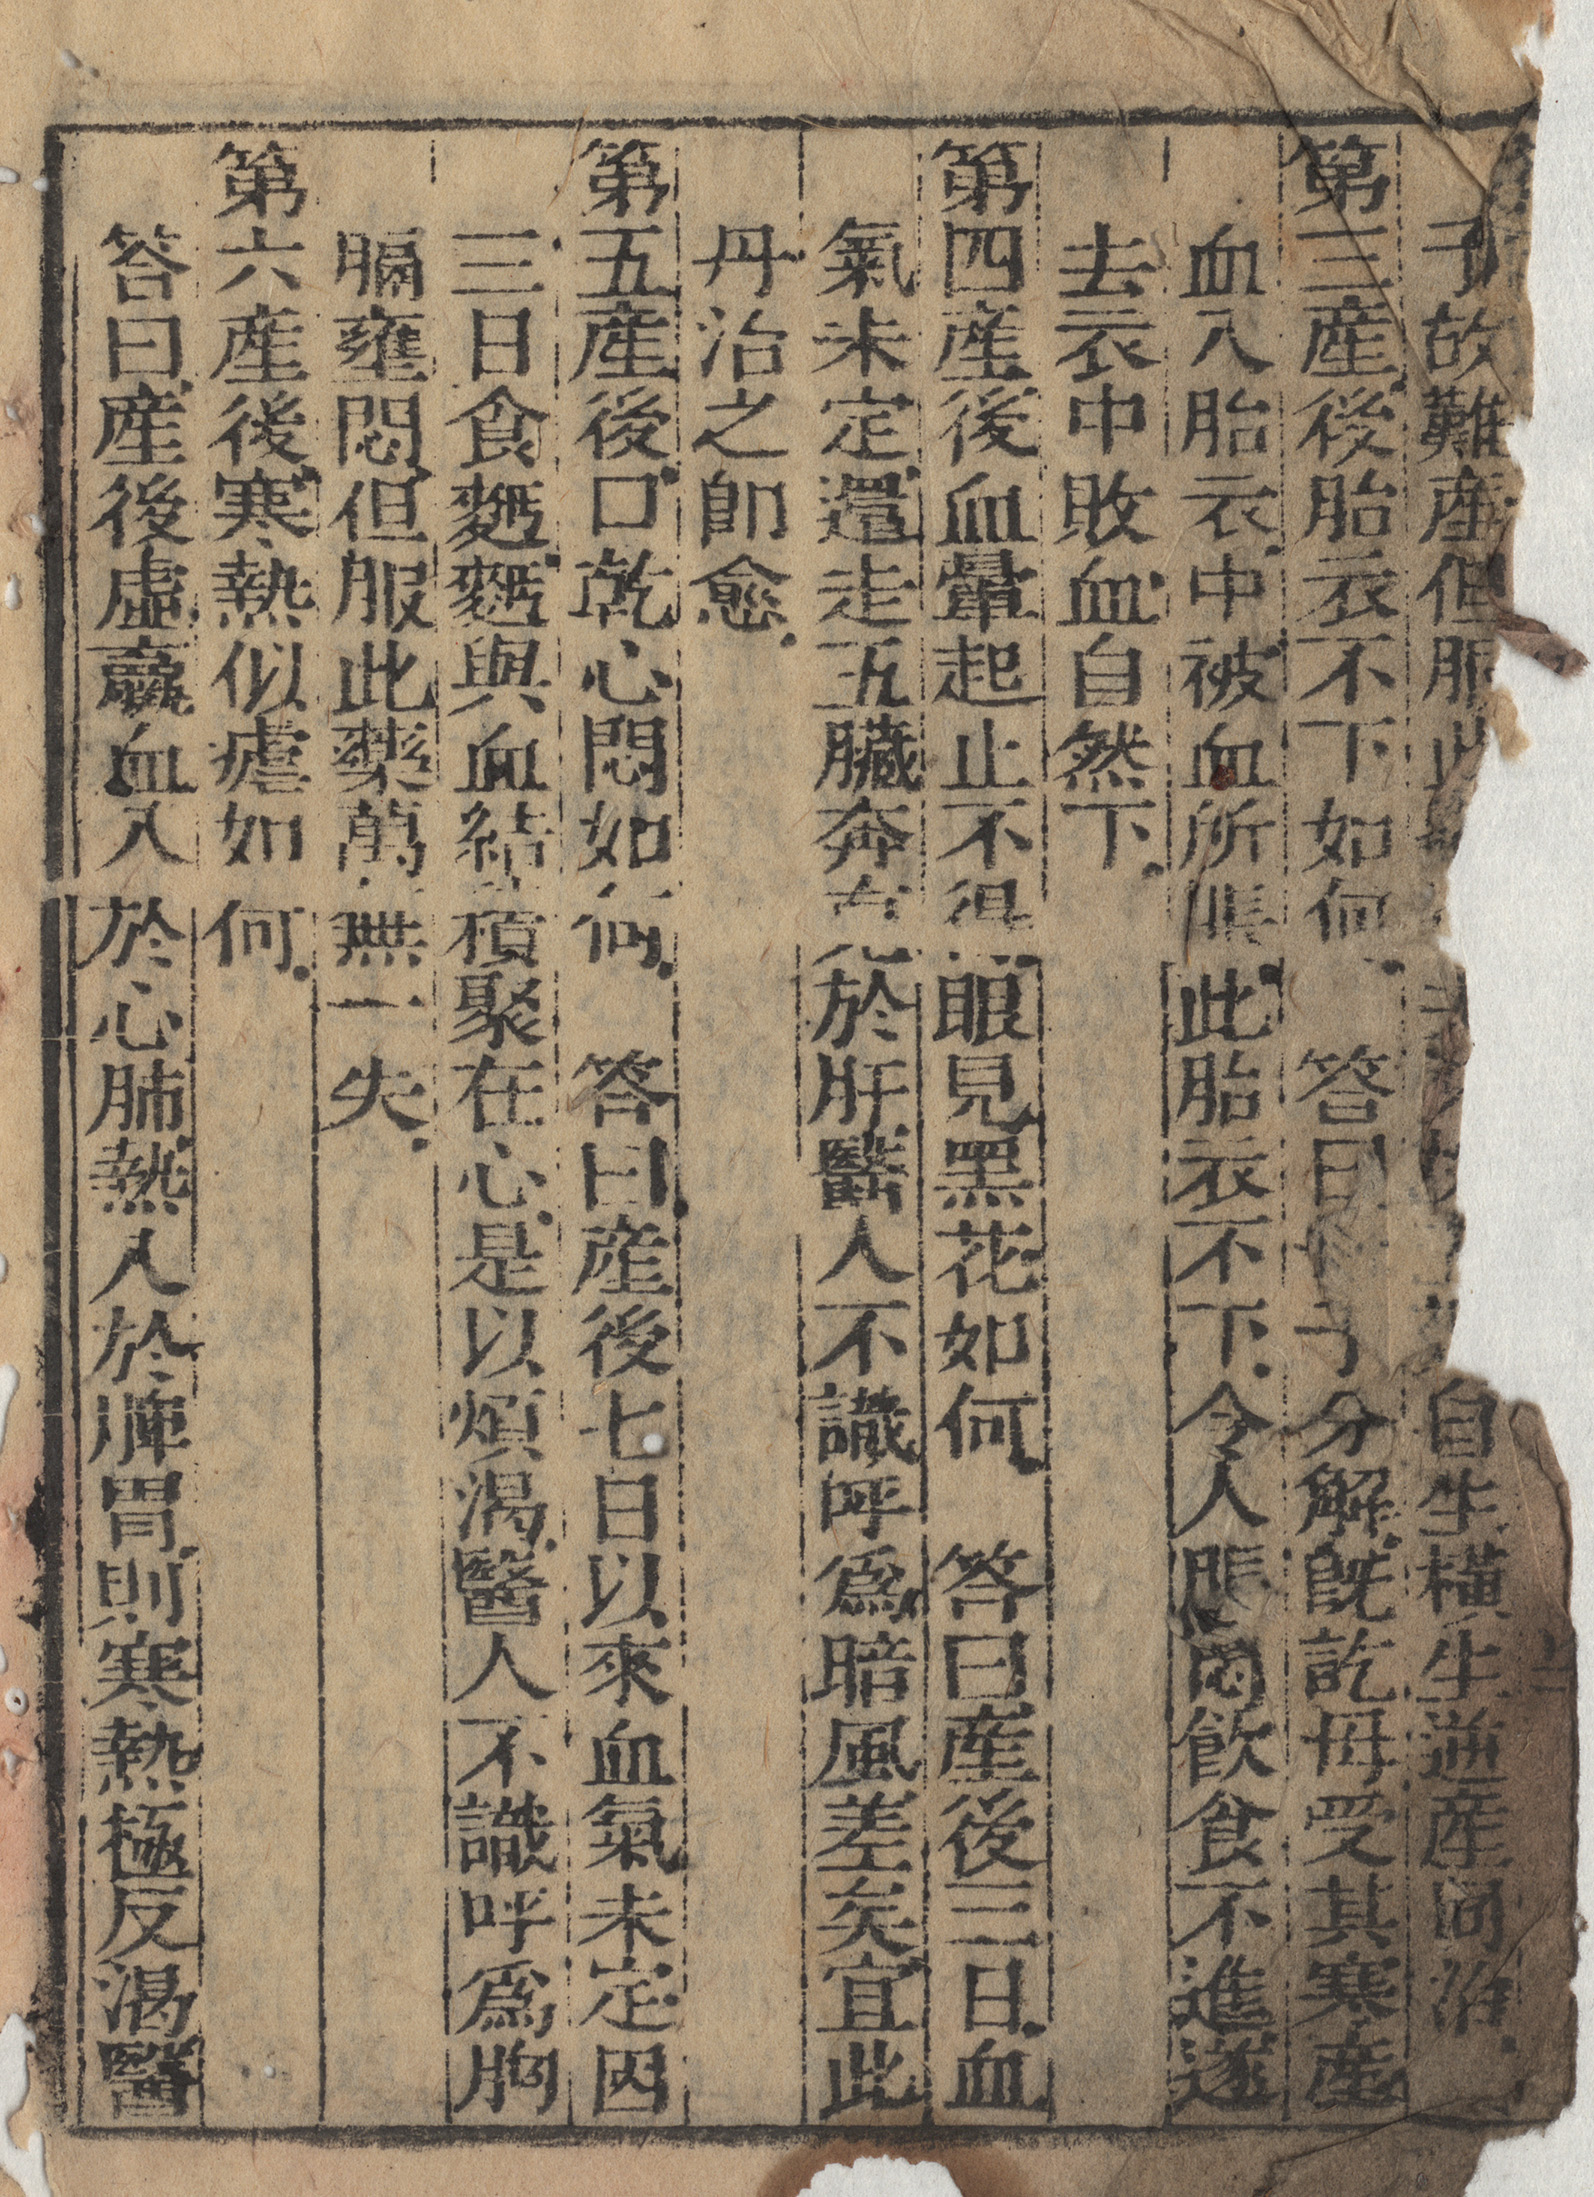 子故難産但服此自生橫生逆産同治
第三産後胎衣不下如何答曰子分解旣訖母受其寒産
血入胎衣中被血所脹此胎衣不下令人脹悶飮食不進遂
去衣中敗血自然下
第四産後血暈起止不得眼見黑花如何答曰産後三日血
氣未定還走五臟奔於肝醫人不識呼爲暗風差矣宜此
丹治之卽愈
第五産後口乾心悶如何答曰産後七日以來血氣未定因
三日食麫麫與血結積聚在心是以煩渴醫人不識呼爲胸
膈壅悶但服此藥萬無一失
第六産後寒熱似瘧如何
答曰産後虛羸血入於心肺熱入於脾胃則寒熱極反渴醫